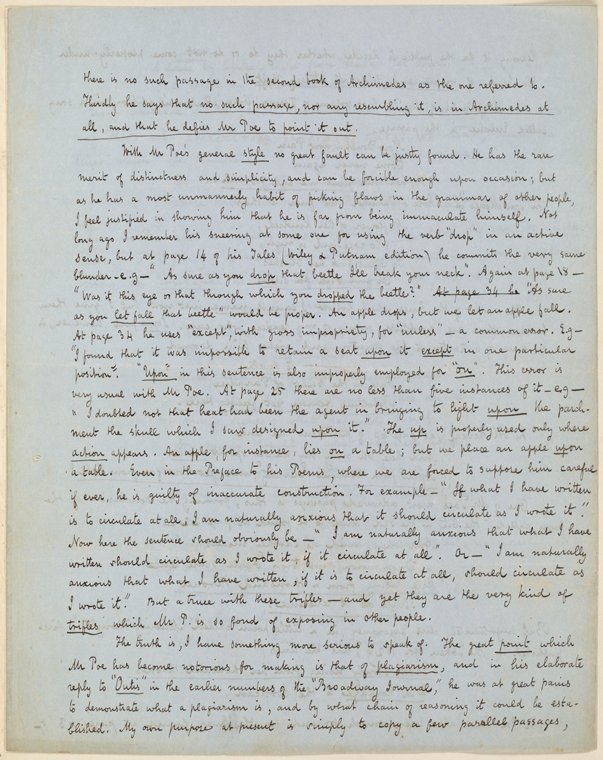 there is no such passage in the second book of Archimedes as the one referred to.
Thirdly he says that no such passage, nor any resembling it, is in Archimedes at
all, and that he defies Mr Poe to point it out.
With Mr Poe's general style no great fault can be justly found. He has the rare
merit of distinctness and simplicity, and can be forcible enough upon occasion; but
as he has a most unmannerly habit of picking flaws in the grammar of other people,
I feel justified in showing him that he is far from being immaculate himself. Not
long ago I remember his sneering at some one for using the verb "drop" in an active
sense, but at page 14 of his Tales (Wiley & Putnam edition) he commits the very same
blunder - e.g - "As sure as you drop that beetle Ile break your neck". Again at page 18 -
"Was it this eye or that through which you dropped the beetle?" At page 34 he "As sure
as you let fall that beetle" would be proper. An apple drops, but we let an apple fall.
At page 34 he uses "except", with gross impropriety, for "unless" - a common error. E.g -
"I found that it was impossible to retain a seat upon it except in one particular
position". "Upon" in this sentence is also improperly employed for "on". This error is
very usual with Mr Poe. At page 25 there are no less than five instances of it - e.g -
"I doubted not that heat had been the agent in bringing to light upon the parch-
ment the skull which I saw designed upon it." The up is properly used only where
action appears. An apple, for instance, lies on a table; but we place an apple upon
a table. Even in the Preface to his Poems, where we are forced to suppose him careful
if ever, he is guilty of inaccurate construction. For example - "If what I have written
is to circulate at all, I am naturally anxious that it should circulate as I wrote it."
Now here the sentence should obviously be - "I am naturally anxious that what I have
written should circulate as I wrote it, if it circulate at all". Or - "I am naturally
anxious that what I have written, if it is to circulate at all, should circulate as
I wrote it." But a truce with these trifles - and yet they are the very kind of
trifles which Mr P. is so fond of exposing in other people.
The truth is, I have something more serious to speak of. The great point which
Mr Poe has become notorious for making is that of plagiarism, and in his elaborate
reply to "Outis" in the earlier numbers of the "Broadway Journal," he was at great pains
to demonstrate what a plagiarism is, and by what chain of reasoning it could be esta-
blished. My own purpose at present is simply to copy a few parallel passages,